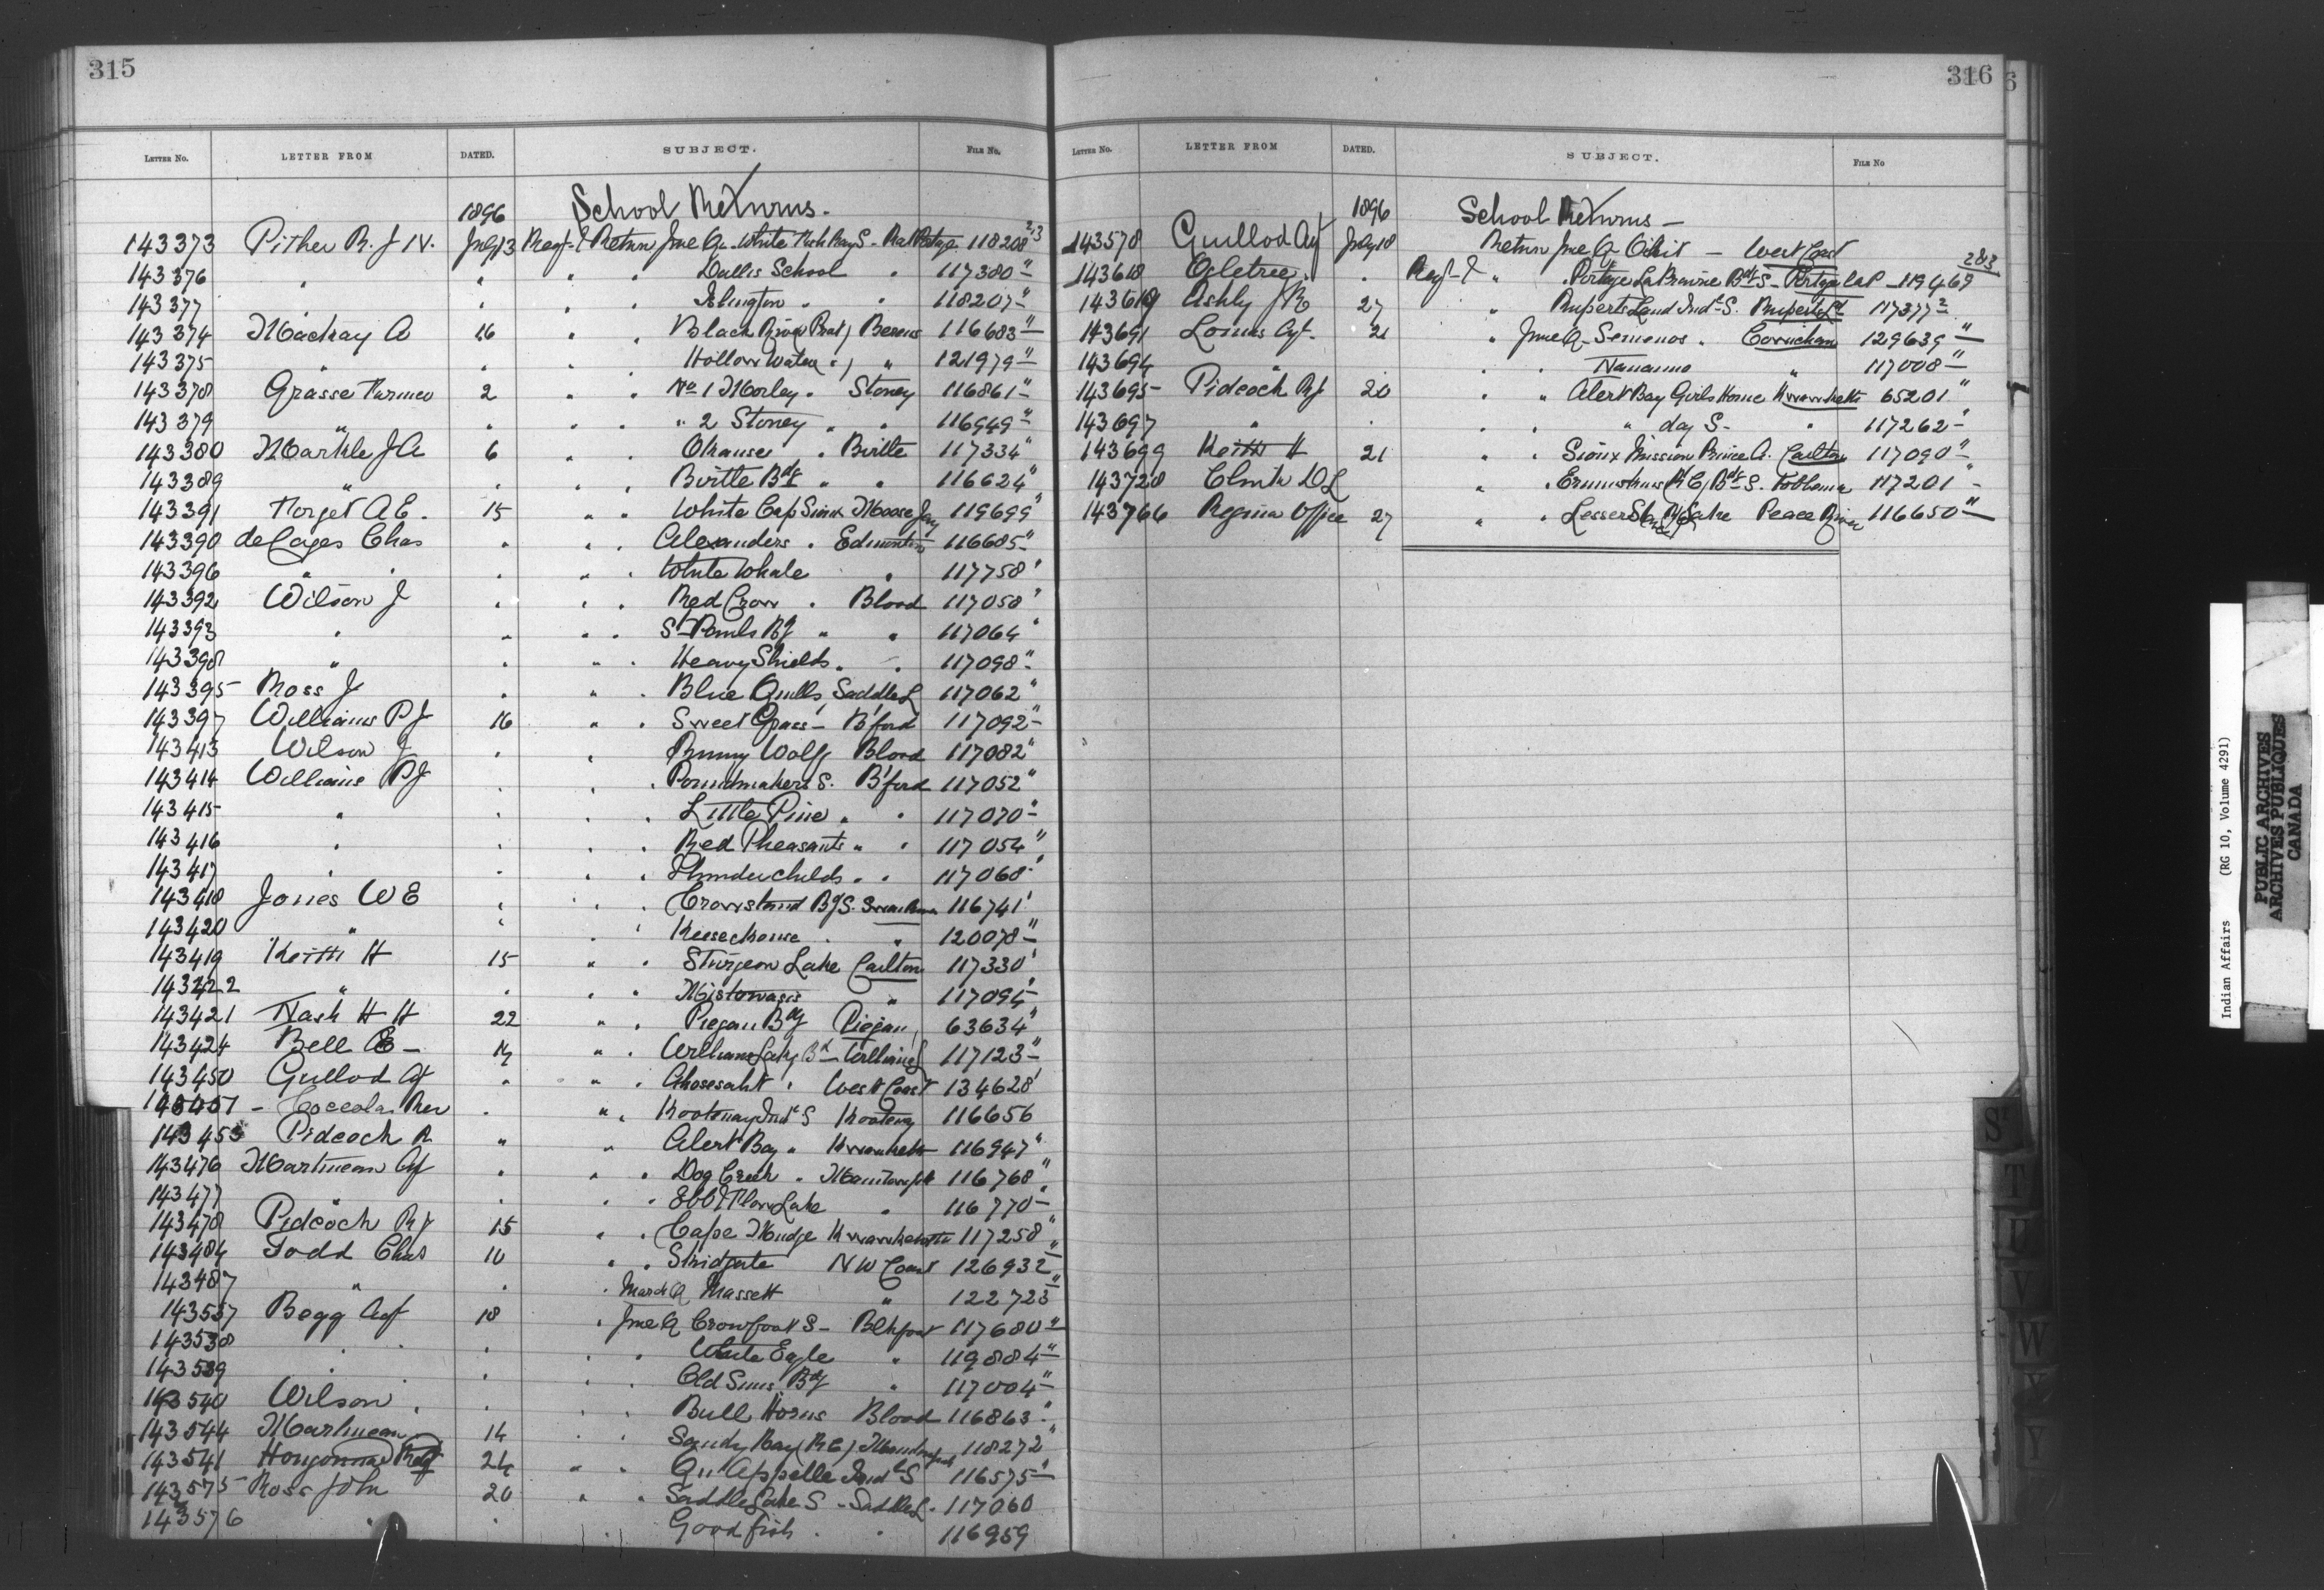 315
LETTER NO. LETTER FROM DATED. SUBJECT. FILE No.
1896 School Returns.
143373 Pither R. J. N. July 13 Regt-g Return June Qr White Fish Bay S - Rat Portage 118208 2/3
143376 " " " " Dallis School " 117380 "
143377 " " " Islington " " 118207 "
143374 Mackay A 16 " " Black River (Prot) Berens 116683 "
143375 " " " " Hollow Water " ) " 121979 "
143378 Grasse Farmer 2 " " No 1 Morley " Stoney 116861 "
143379 " " " " " 2 Stoney " " 116949 "
143380 Markle J A 6 " " Okanses " Birtle 117334 "
143389 " " " " Birtle Bdg " " 116624 "
143391 Forget A E. 15 " " White Cap Sioux Moose Jaw 119699 "
143390 de Cazes Chas " " " Alexanders " Edmonton 116685 "
143396 " " " " " White Whale " 117758 "
143392 Wilson J " " " Red Crow " Blood 117058 "
143393 " " " " St Pauls Bg " " 117064 "
143398 " " " " Heavy Shields " " 117098 "
143395 Ross J " " " Blue Quills, Saddle L 117062 "
143397 Williams P J 16 " " Sweet Grass - B'ford 117092 "
143413 Wilson J " " Bunny Wolfs Blood 117082 "
143414 Williams P J " " " Poundmakers S. B'ford 117052 "
143415 " " " " Little Pine " " 117070 "
143416 " " " " Red Pheasants " " 117054 "
143417 " " " " Thunderchilds " " 117068 "
143418 Jones W E " " " Crowstand Bg S. Swan River 116741 "
143420 " " " " Keeseekouse " " 120078 "
143419 Keith H 15 " " Sturgeon Lake Carlton 117330 "
143422 " " " " Mistowasis " 117094 "
143421 Nash H H 22 " " Piegan Bdg Piegan 63634 "
143424 Bell E - 14 " " Williams Lake Bd - Williams L 117123 "
143450 Guillod Agt " " " Ahosesaht " West Coast 134628 "
143451 - Coccola Rev " " " Kootenay Indl S Kootenay 116656
143453 Pidcock R " " Alert Bay " Kwawkewlth 116947 "
143476 Martineau Agt " " " Dog Creek " Manitowpah 116768 "
143477 " " " " Ebb & Flow Lake " 116770 "
143478 Pidcock R J 15 " " Cape Mudge Kwawkewlth 117258 "
143484 Todd Chas 10 " " Skidgate N W Coast 126932 "
143487 " " " March Q Massett " 122723 "
143537 Begg Agt 18 " June Q Crowfoot S - Blkfoot 117680 "
143538 " " " " " White Eagle " 119884 "
143539 " " " " Old Suns Bdg " 117004 "
143540 Wilson " " " " Bull Horns Blood 116863 "
143544 Martineau 14 " " Sandy Bay (R C) Manitowpah 118272 "
143541 Hougonnard Revd 24 " " Qu'Appelle Indl S 116575 "
143575 Ross John 20 " " Saddle Lake S - Saddle L. 117060
143576 " " " Goodfish " " 116959
316
LETTER NO. LETTER FROM DATED. SUBJECT. FILE NO
1896 School Returns -
143578 Guillod Agt July 18 Return June Q Oikit - West Coast
143618 Ogletree " " Regt-g " " Portage La Prairie Bdg S - Portage la P - 119469 2&3
143619 Ashby 27 " Ruperts Land Indl S. Ruperts Ld 117377 2
143691 Lomas Agt - 21 " June Q - Somenos " Cowichan 129639 "
143694 " " " Nanaimo " 117008 "
143695 Pidcock R J 20 " " Alert Bay Girls Home Kwawkewlth 65201 "
143697 " " " " " day S - " 117262 "
143699 Keith H 21 " " Sioux Mission Prince A. Carlton 117090 "
143728 Clink D L " " Ermineskins (R C) Bdg S. Hobbema 117201 "
143766 Regina Office 27 " " Lesser Slave Lake Peace River 116650 "
S T U V W X Y
Indian Affairs (RG 10, Volume 4291)
PUBLIC ARCHIVES
ARCHIVES PUBLIQUES
CANADA